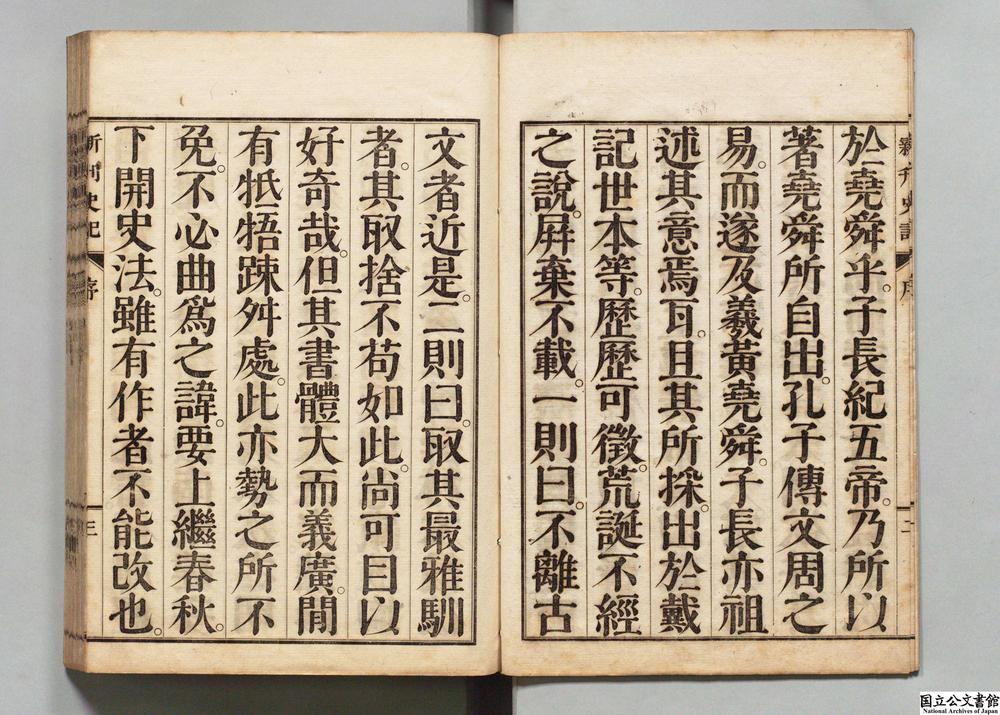 於堯舜乎。子長紀五帝。乃所以
著堯舜所自出。孔子傳文周之
易。而遂及羲黃堯舜。子長亦祖
述其意焉耳。且其所採。出於戴
記世本等。歷歷可徵。荒誕不經
之說。屛棄不載。一則曰。不離古
文者近是。二則曰。取其最雅馴
者。其取捨不苟如此。尚可目以
好奇哉。但其書體大而義廣。間
有牴牾踈舛處。此亦勢之所不
免。不必曲爲之諱。要上繼春秋。
下開史法。雖有作者不能改也。
序
二
史記
序
三
国立公文書館
National Archives of Japan